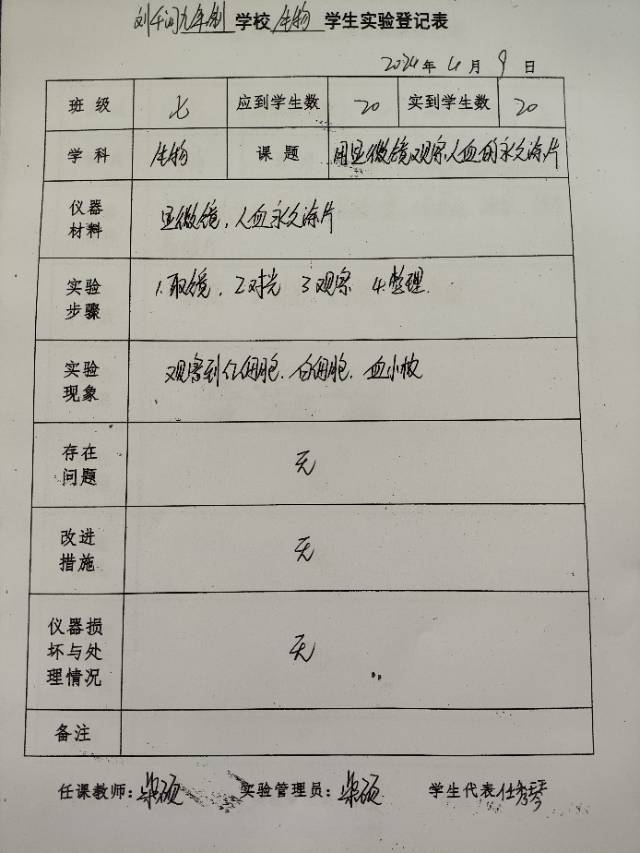 刘千润九年制学校生物学生实验登记表
2024年4月9日
班级 七 应到学生数 20 实到学生数 20
学科 生物 课题 用显微镜观察人血的永久涂片
仪器材料 显微镜、人血永久涂片
实验步骤 1.取镜、2对光 3观察 4.整理.
实验现象 观察到红细胞.白细胞.血小板
存在问题 无
改进措施 无
仪器损坏与处理情况 无
备注
任课教师:梁硕 实验管理员:梁硕 学生代表